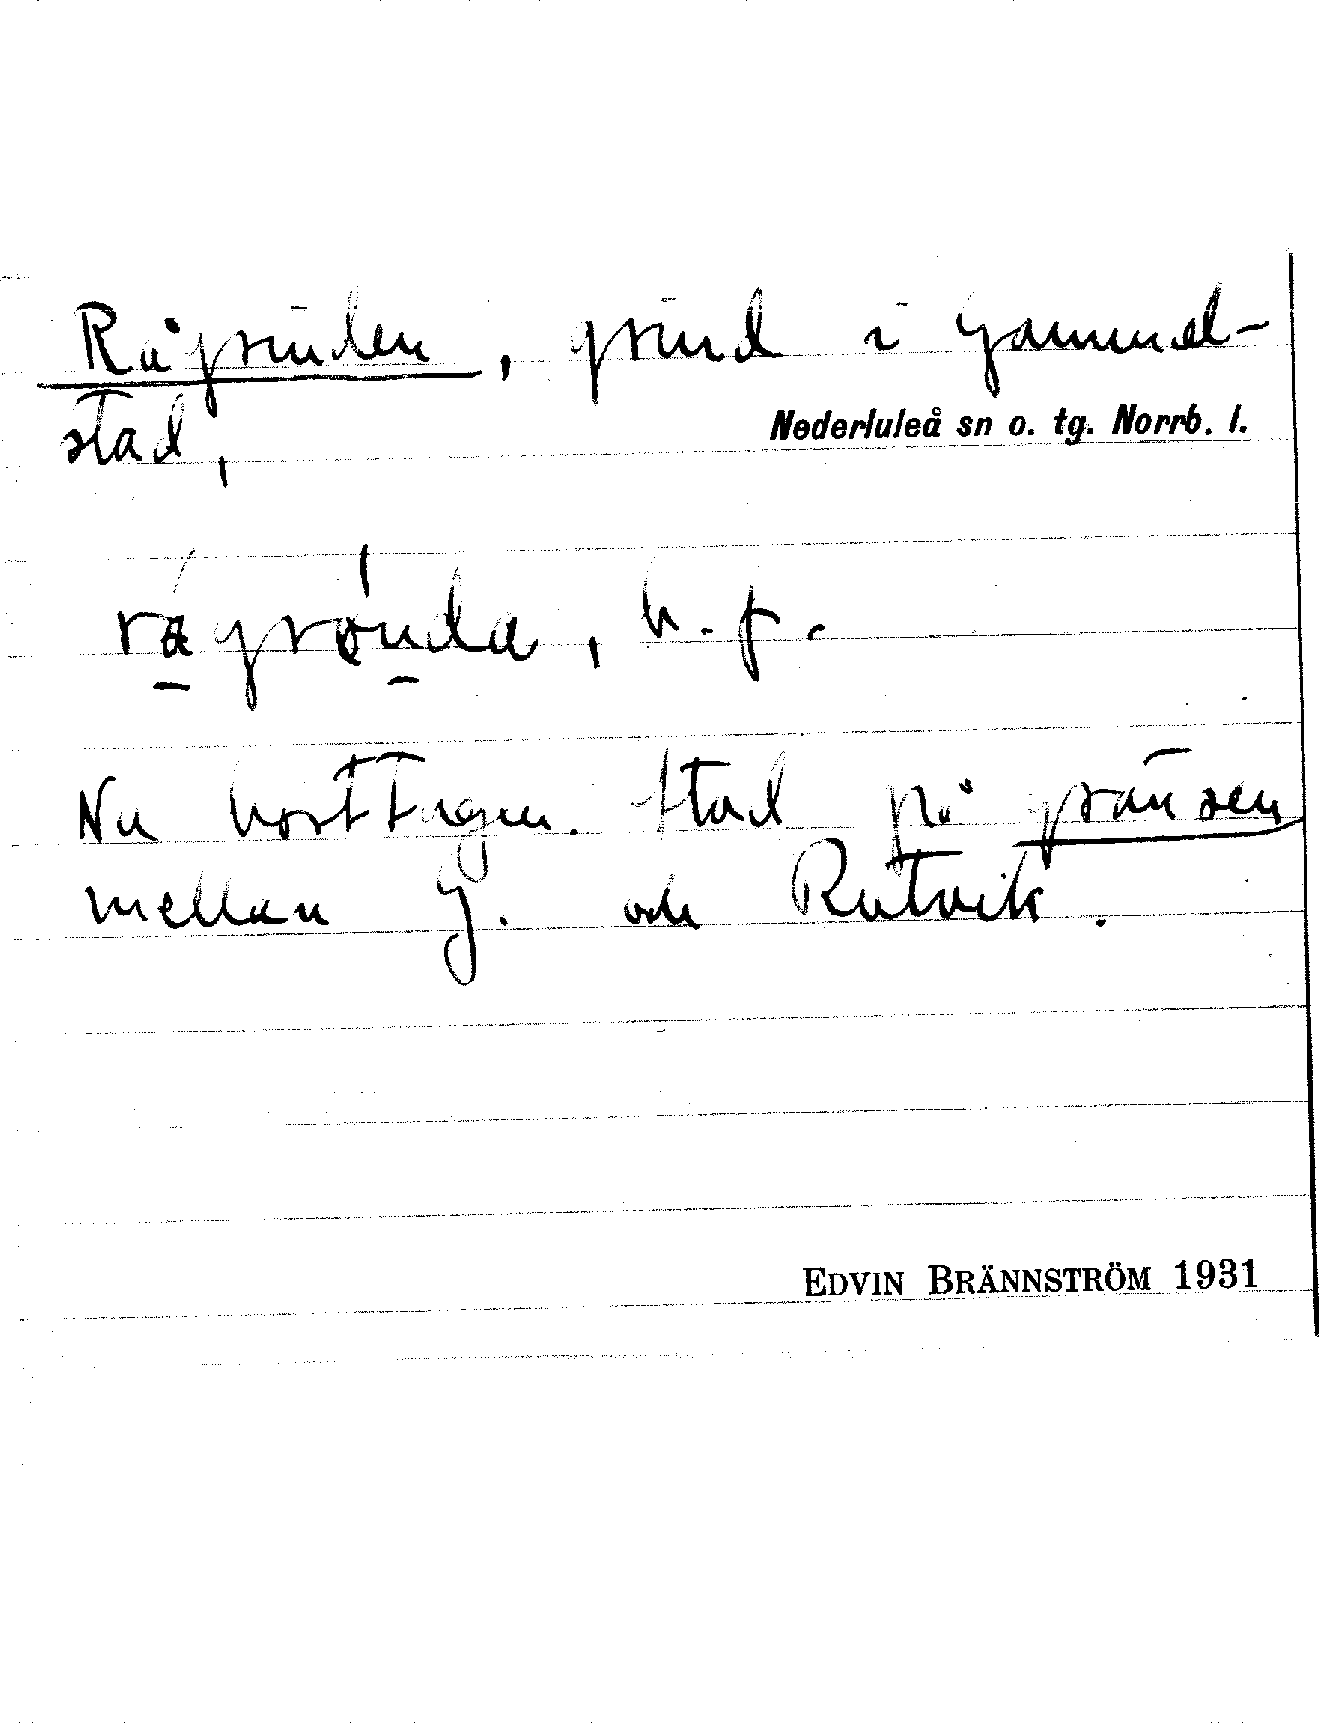 Rågrinden, grind i Gammel-
stad,
Nederluleå sn o. tg. Norrb. l.
rågrǿnda, b. f.
Nu borttagen. Stod på gränsen
mellan G. och Rutvik.
EDVIN BRÄNNSTRÖM 1931